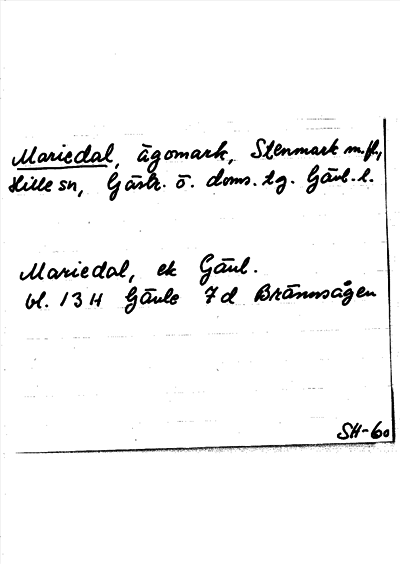 Mariedal, ägomark, Stenmark m.fl.,
Hille sn, Gästr. ö. doms. tg. Gävl. l.
Mariedal, ek Gävl.
bl. 13 H Gävle 7d Brännsågen
SH-60